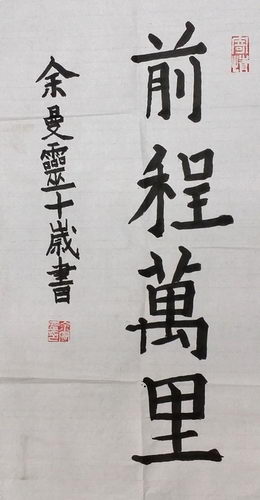 前程萬里
余曼靈十歲書